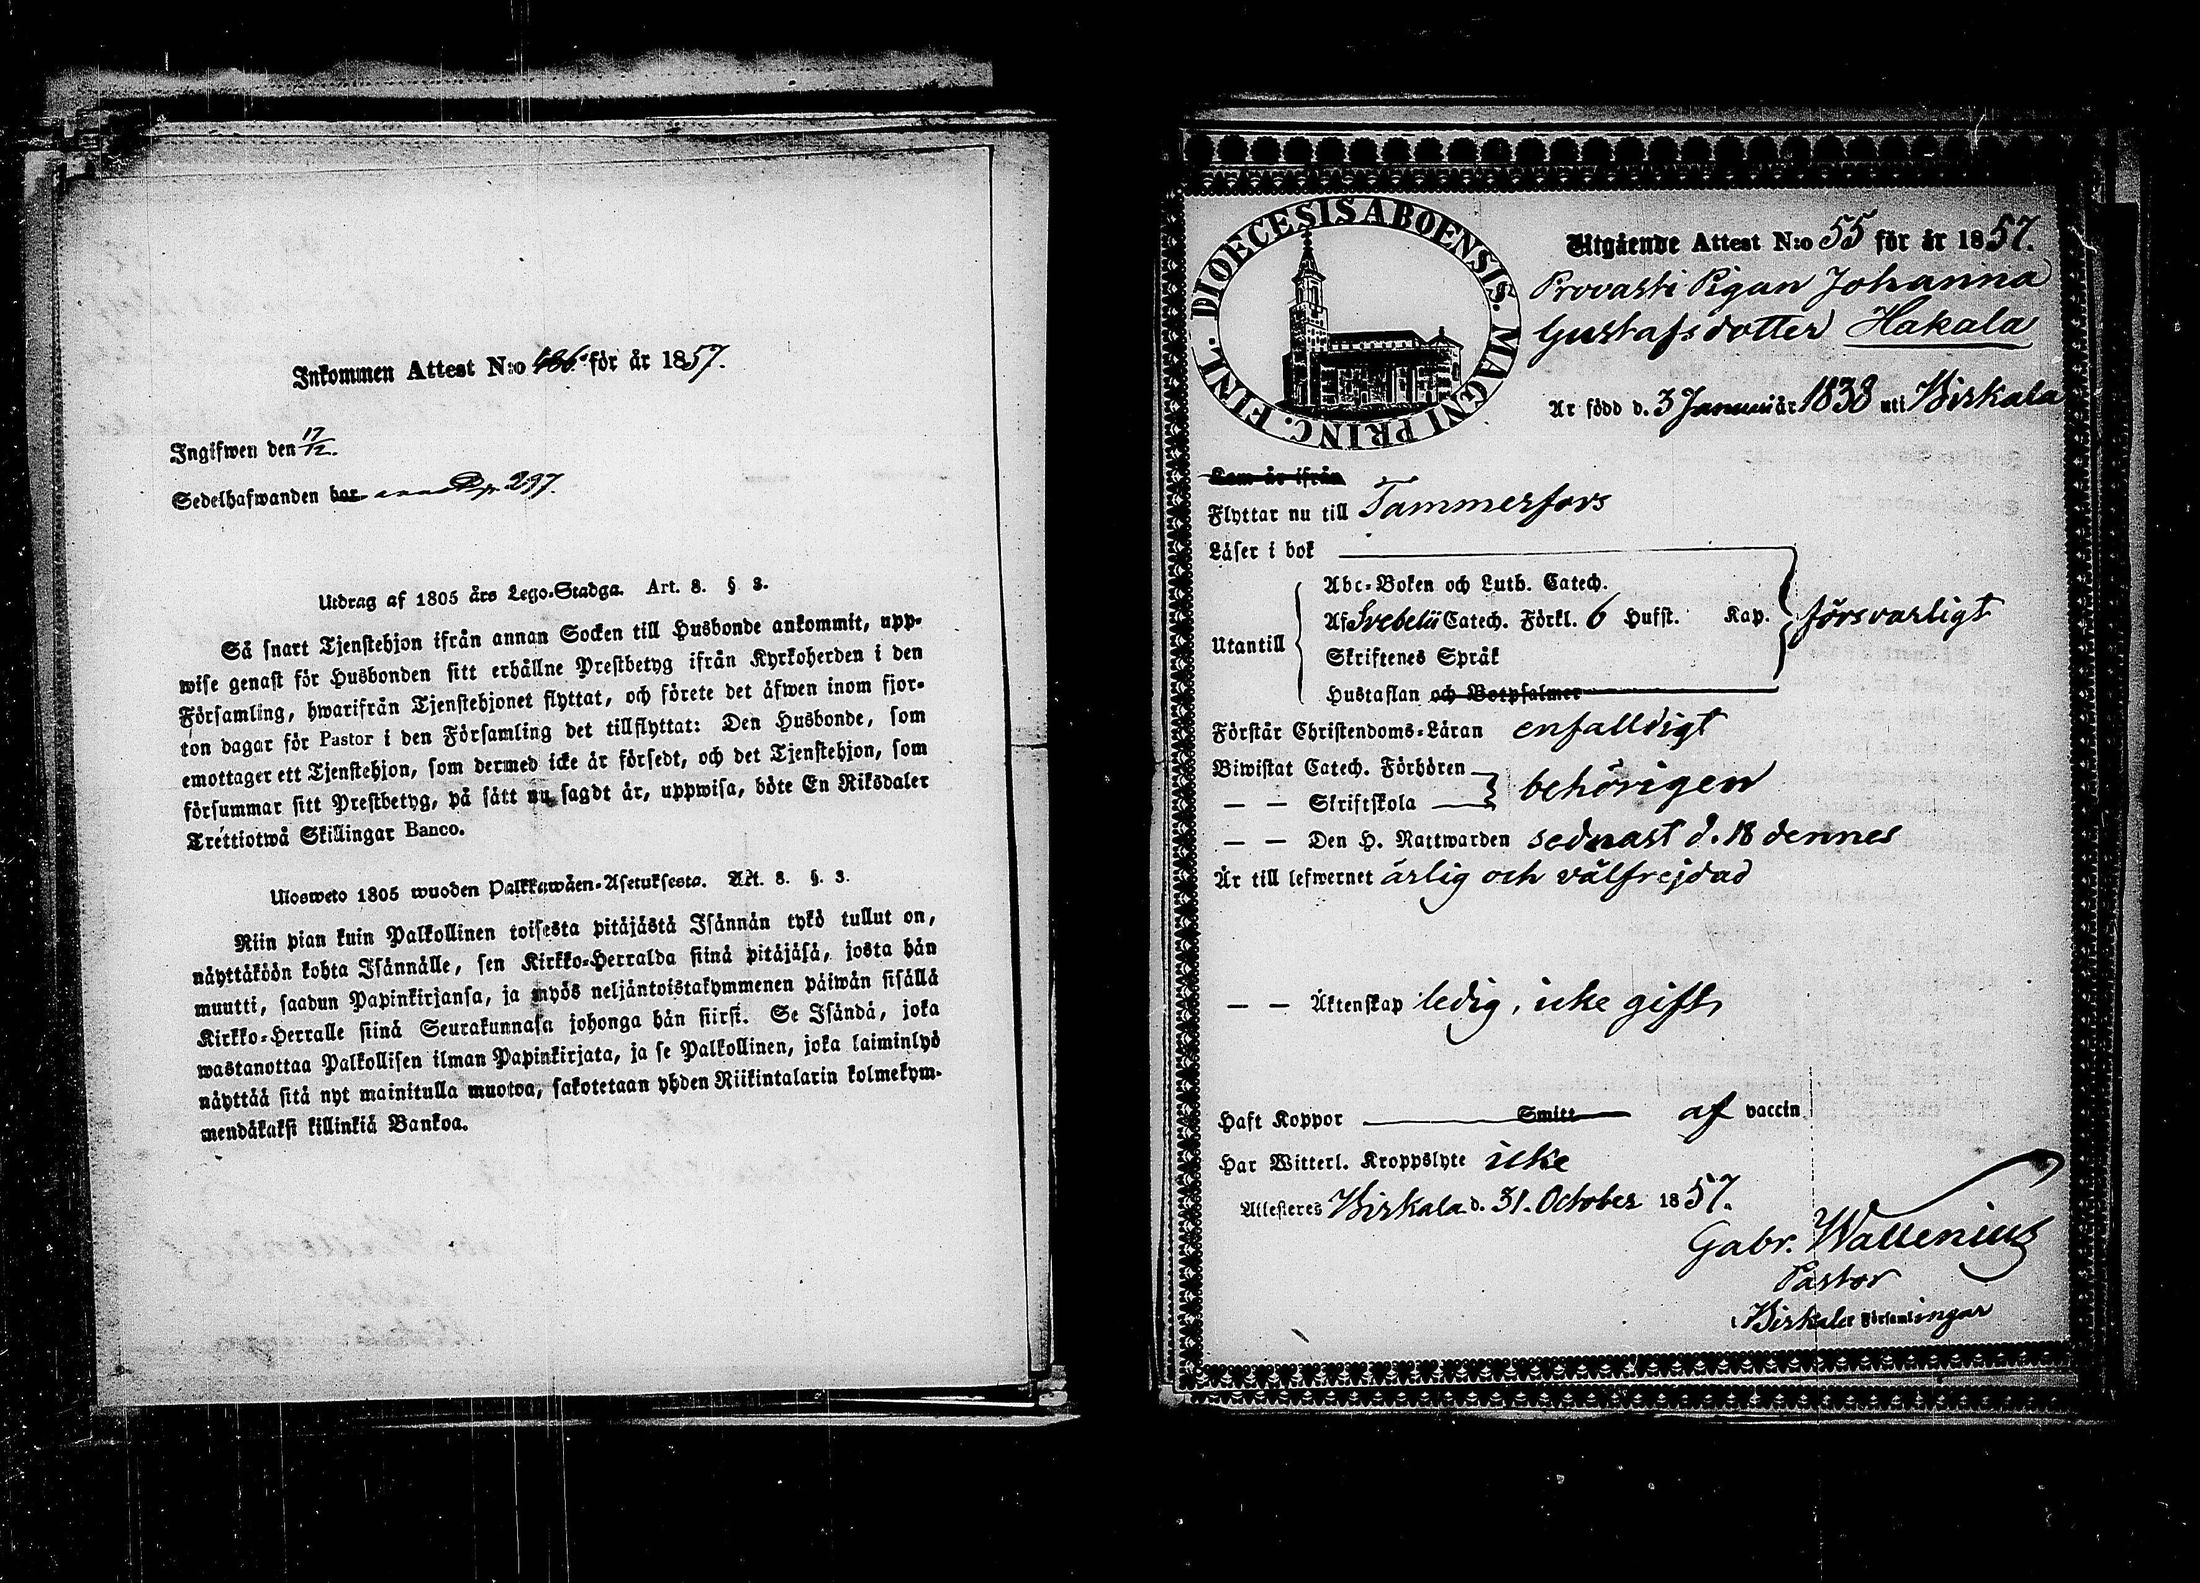 Inkommen Attest N:o för år 1857.
Ingifwen den 17/12.
Sedelhafwanden bor 297.
Utdrag af 1805 års Lego-Stadga. Art. 8. § 3.
Så snart Tjenstehjon ifrån annan Socken till Husbonde ankommit, upp-
wise genast för Husbonden sitt erhållne Prestbetyg ifrån Kyrkoherden i den
Församling, hwarifrån Tjenstehjonet flyttat, och förete det äfwen inom fjor-
ton dagar för Pastor i den Församling det tillflyttat: Den Husbonde, som
emottager ett Tjenstehjon, som dermed icke är försedt, och det Tjenstehjon, som
försummar sitt Prestbetyg, på sätt nu sagdt är, uppwisa, böte En Riksdaler
Trettiotwå Skillingar Banco.
Ulosweto 1805 wuoden Palkkawäen-Asetuksesta. Art. 8. §. 3.
Niin pian kuin Palkollinen toisesta pitäjästä Isännän tykö tullut on,
näyttäköön kohta Isännälle, sen Kirkko-Herralda siinä pitäjäsä, josta hän
muutti, saadun Papinkirjansa, ja myös neljäntoistakymmenen päiwän sisällä
Kirkko-Herralle siinä Seurakunnasa johonga hän siirsi. Se Isändä, joka
wastanottaa Palkollisen ilman Papinkirjata, ja se Palkollinen, joka laiminlyö
näyttää sitä nyt mainitulla muotoa, sakotetaan yhden Riikintalarin kolmekym-
mendäkaksi killinkiä Bankoa.
DIOECESIS ABOENSIS. MAGNI PRINC. FINL.
Utgående Attest N:o 55 för år 1857.
Provasti Pigan Johanna
Gustafsdotter Hakala
Är född d. 3 Januari år 1838 uti Birkala
Kom år ifrån
Flyttar nu till Tammerfors
Läser i bok
Abc-Boken och Luth. Catech.
Utantill Af Svebelii Catech. Förkl. 6 Hufst. Kap. försvarligt
Skriftenes Språk
Hustaflan och Botpsalmer
Förstår Christendoms-Läran enfalldigt
Biwistat Catech. Förhören
— — Skriftskola behörigen
— — Den H. Nattwarden sednast d. 18 dennes
Är till lefwernet ärlig och välfrejdad
— — Äktenskap ledig, icke gift
Haft Koppor Smitt af vaccin
Har Witterl. Kroppslyte icke
Attesteres Birkala d. 31. October 1857.
Gabr. Wallenius
Pastor
i Birkala Församlingar